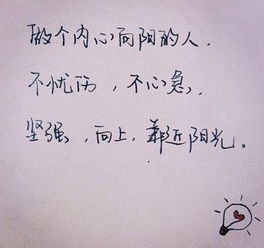 做个内心向阳的人.
不忧伤,不心急,
坚强,向上,靠近阳光。